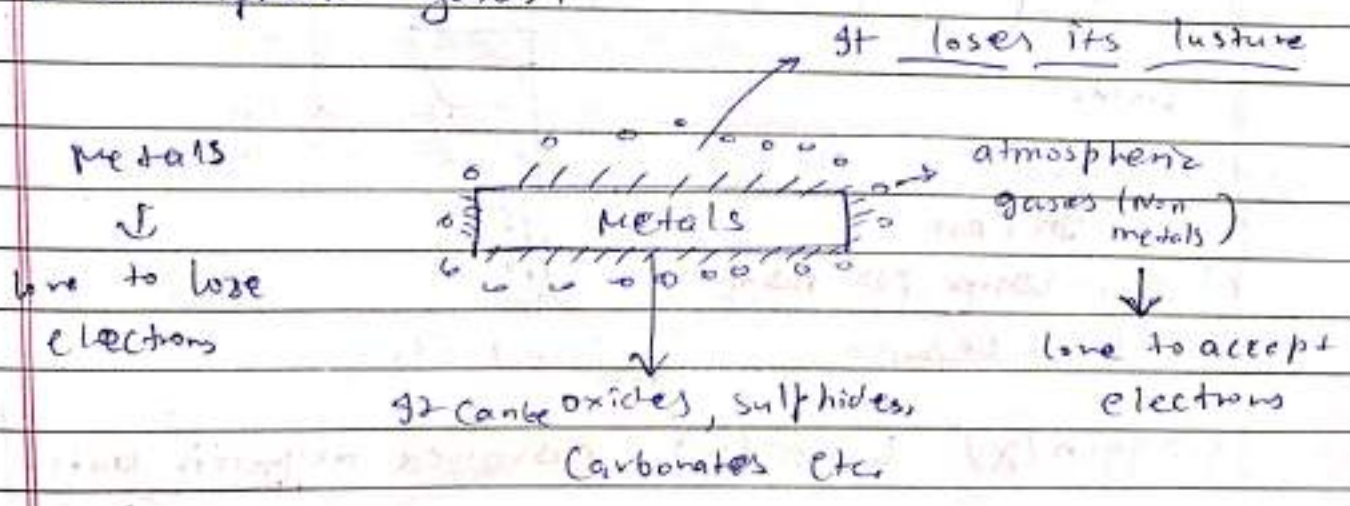 It loses its lusture
Metals
love to lose
electrons
Metals
atmospheric
gases (Non
metals)
love to accept
electrons
It can be oxides, sulphides,
Carbonates etc.